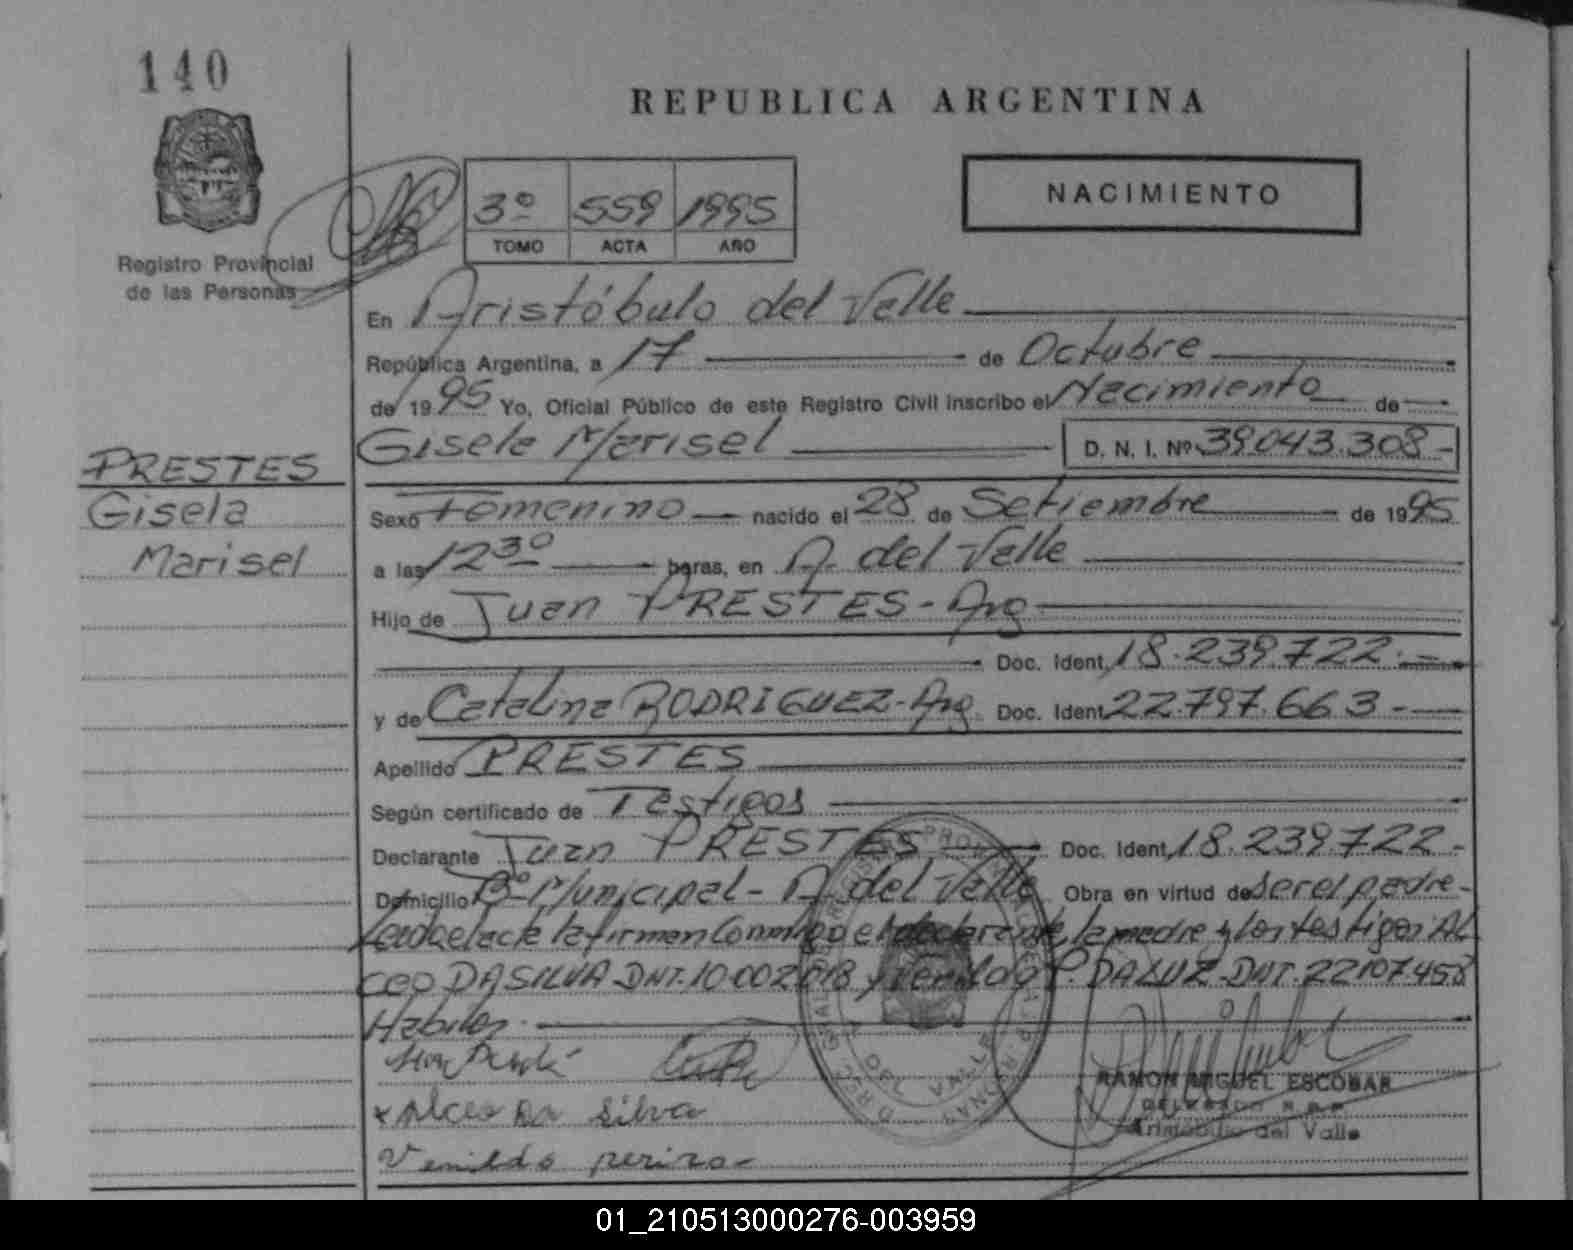 140
REPUBLICA ARGENTINA
NACIMIENTO
3º 559 1995
TOMO ACTA AÑO
Registro Provincial
de las Personas
En Aristóbulo del Valle
República Argentina, a 17 de Octubre
de 1995 Yo, Oficial Público de este Registro Civil inscribo el Nacimiento de
Gisela Marisel D. N. I. Nº 39.043.308-
PRESTES
Gisela
Marisel
Sexo Femenino nacido el 28 de Setiembre de 1995
a las 12 30 horas, en A. del Valle
Hijo de Juan PRESTES - Arg
Doc. Ident. 18.239.722.-
y de Catalina RODRIGUEZ-Arg. Doc. Ident. 22.797.663.-
Apellido PRESTES
Según certificado de Testigos
Declarante Juan PRESTES Doc. Ident. 18.239.722.-
Domicilio Bº Municipal - A. del Valle Obra en virtud de ser el padre-
Leida el acta la firman Conmigo el declarante, la madre y los testigos: AL
ceo DASILVA-DNI.10.002.018 y P. DALUZ-DNI.22.107.458
Habiles.-
x Alceo Da Silva
RAMON MIGUEL ESCOBAR
Aristóbulo del Valle
DEL VALLE
01_210513000276-003959